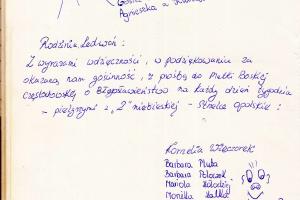 Gosia
Agnieszka a
Rodzinia Ledwoń :
Z wyrazami wdzięczności, w podziękowaniu za
okazaną nam gościnność, z prośbą do Matki Boskiej
Częstochowskiej o Błogosławieństwo na każdy dzień tygodnia
- pielgrzymi z "2" niebieskiej - Strzelce Opolskie :
Kornelia Wieczorek
Barbara Pluta
Barbara Polaczek
Mariola Kołodziej
Monika